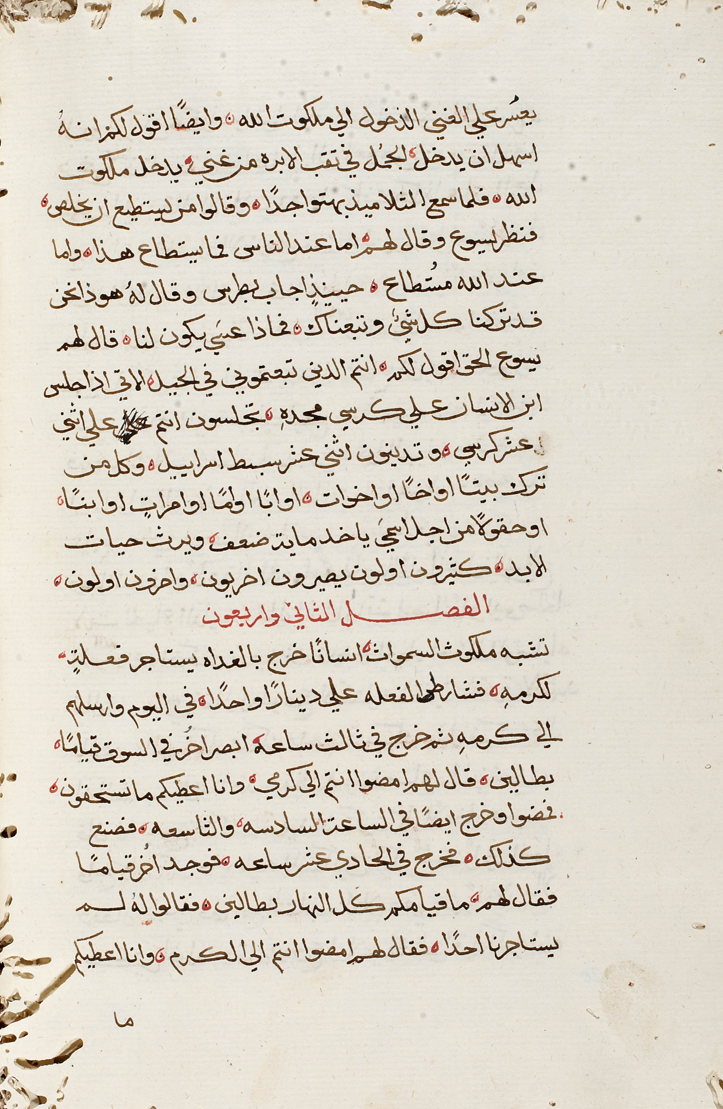 يعسر علي الغني الدخول الي ملكوت الله ۞ وايضًا اقول لكم انهُ
اسهل ان يدخل الجمل في تقب الابره من غني يدخل ملكوت
الله ۞ فلما سمع التلاميذ بهتوا جدًا ۞ وقالوا من يستطيع ان يخلص ۞
فنظر يسوع وقال لهم ۞ اما عند الناس فما يستطاع هذا ۞ واما
عند الله مُستطاع ۞ حينيذٍ اجاب بطرس وقال لهُ هوذا نحن
قد تركنا كل شيً وتبعناك ۞ فماذا عسَي يكون لنا ۞ قال لهم
يسوع الحق اقول لكم ۞ انتم الدين تبعتموني في الجيل الاتي اذا جلس
ابن الانسان علي كرسي مجدهِ ۞ تجلسون انتم علي اثني
عشر كرسي ۞ وتدينون اثني عشر سبط اسراييل ۞ وكل من
ترك بيتًا اواخًا اواخوات ۞ اوابًا اوامًا اوامراتٍ اوابنًا ۞
اوحقولاً من اجل اسميَ ياخد ماية ضعف ۞ ويرث حيات
الابد ۞ كثيرون اولون يصيرون اخريون ۞ واخرون اولون ۞
الفصل الثاني واربعون
تشبه ملكوت السموات انسانًا خرج بالغداه يستاجر فعلةٍ ۞
لكرمهِ ۞ فشارط الفعله علي دينارًا واحدًا ۞ في اليوم وارسلهم
الي كرمهِ ثم خرج في ثالث ساعه ۞ ابصر اخُر في السوق قيامًا ۞
بطالين ۞ قال لهم امضوا انتم الي كرمي ۞ وانا اعطيكم ما تستحقون ۞
فمضوا وخرج ايضًا في الساعة السادسه ۞ والتاسعه ۞ فصنع
كذلك ۞ فخرج في الحادي عشر ساعه ۞ فوجد اخُر قيامًا
فقال لهم ۞ ما قيامكم كل النهار بطالين ۞ فقالوا لهُ لم
يستاجرنا احدًا ۞ فقال لهم امضوا انتم الي الكرم ۞ وانا اعطيكم
ما